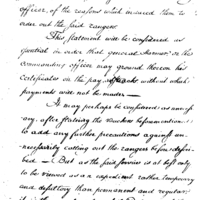 officer, of the reasons which induced them to
order out the said rangers
This statement will be considered as
essential in order that general Harmar, or the
commanding officer may ground thereon his
certificates on the pay abstracts without which
payments will not be made —
It may perhaps be considered as unnecess
ary, after stating the reasons beforementioned
to add any further precautions against un
necessarily calling out the rangers beforedescri
bed — But as the said service is at best only
to be viewed as an expedient rather temporary
and defultory than permanent and regular